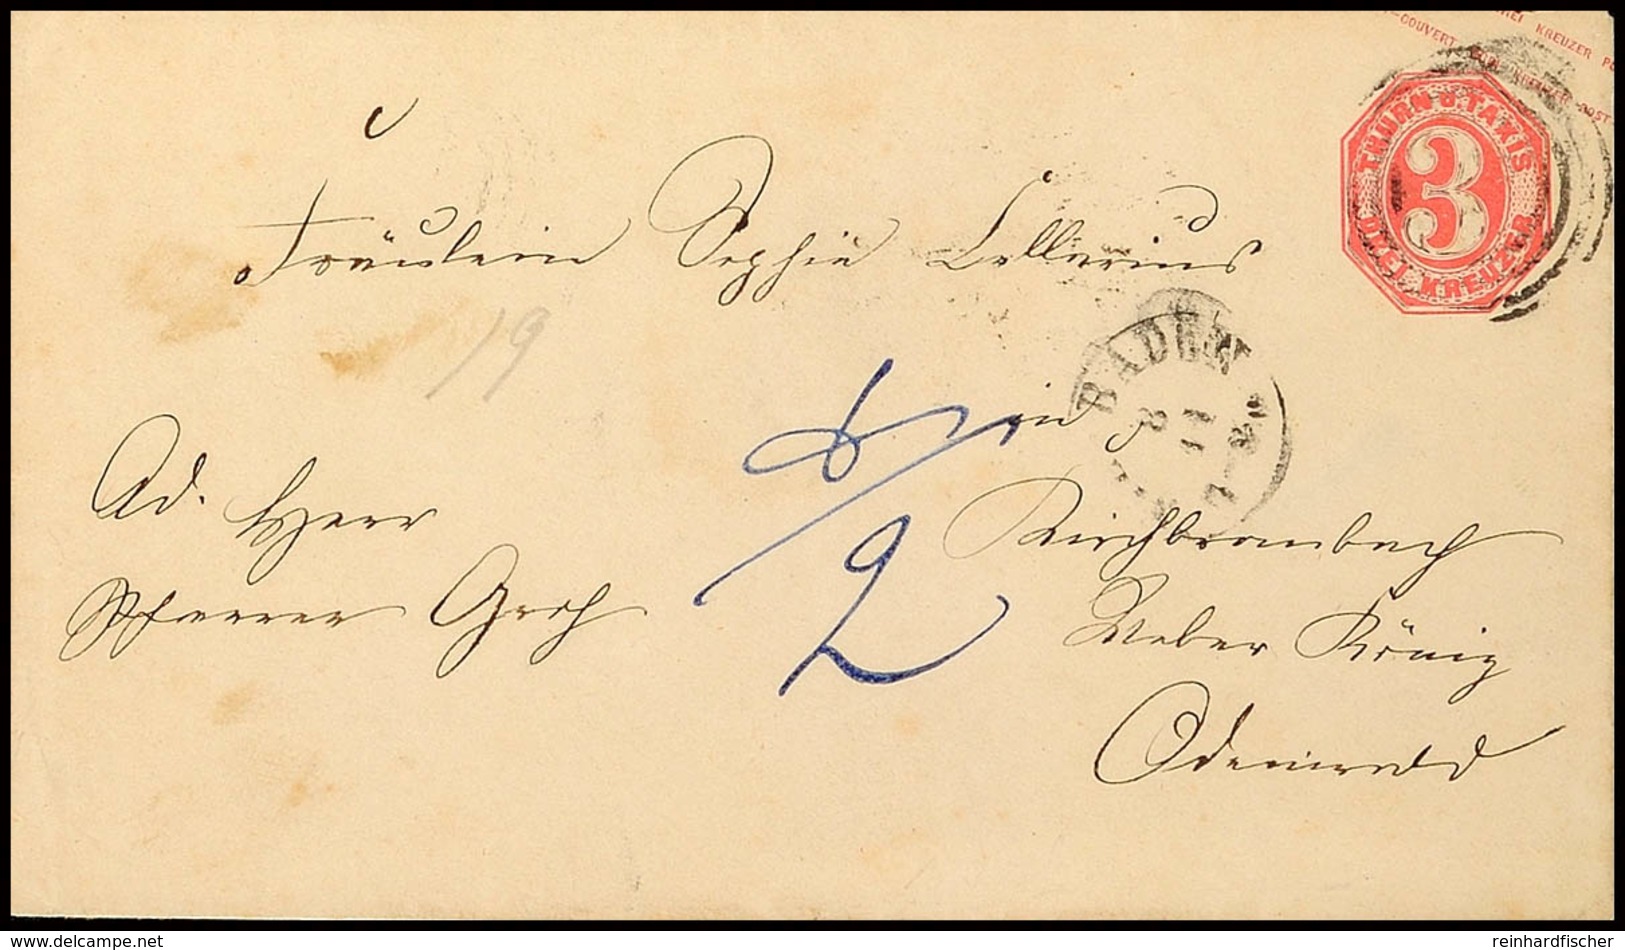 DREI KREUZER
-COUVERT
THURN U. TAXIS
3
DREI KREUZER
Fräulein Sophie Cellarius
19
BADEN
in
Ad. Herr
Pfarrer Groh
2
Kirchbrombach
Weber König
Odenwald
delcampe.net
reinhardfischer